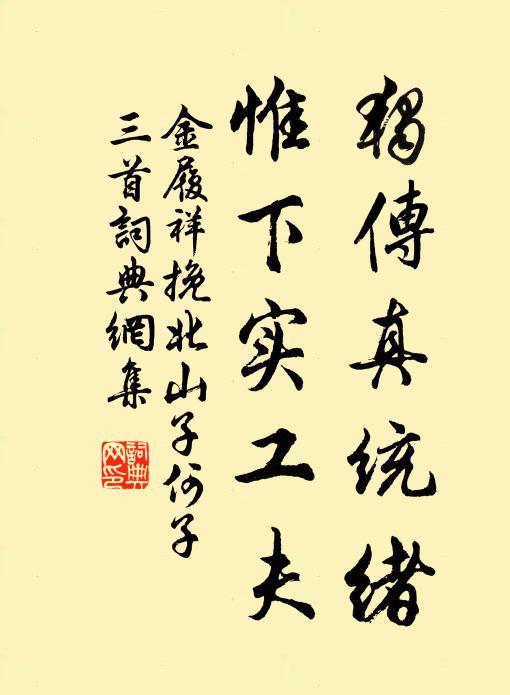 獨傳真統緒
惟下实工夫
金履祥挽北山子何子
三首詞典網集
詞典
网印